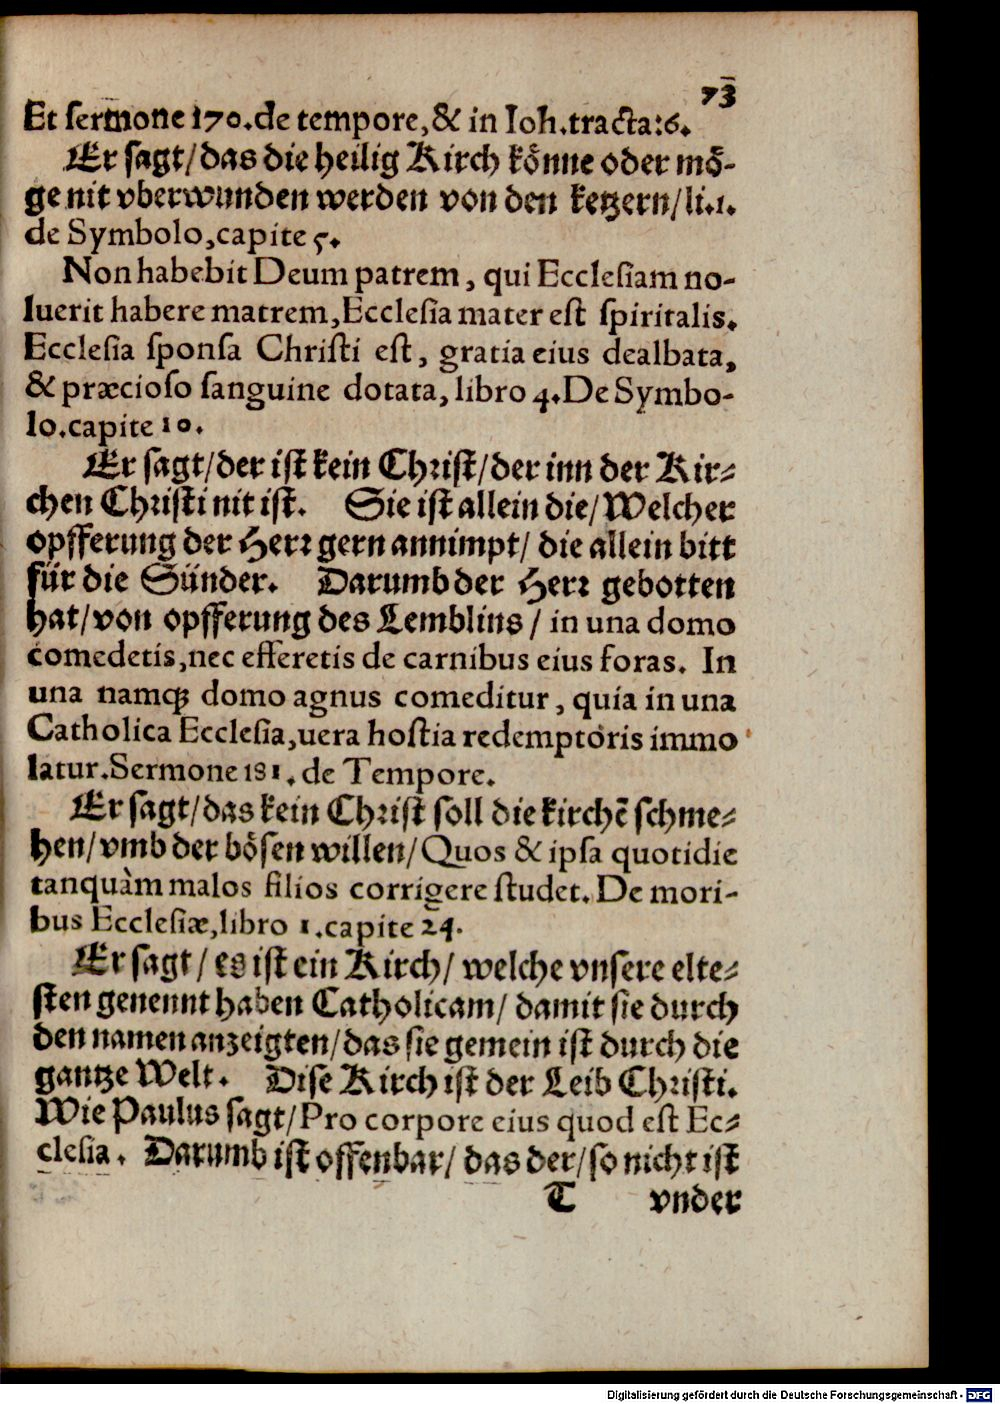 73
Et sermone 170.de tempore,& in Ioh.tracta:6.
Er sagt/das die heilig Kirch könne oder mö-
ge nit vberwunden werden von den ketzern/li.1.
de Symbolo,capite 5.
Non habebit Deum patrem, qui Ecclesiam no-
luerit habere matrem,Ecclesia mater est spiritalis.
Ecclesia sponsa Christi est, gratia eius dealbata,
& præcioso sanguine dotata, libro 4.De Symbo-
lo.capite 10.
Er sagt/der ist kein Christ/der inn der Kir-
chen Christi nit ist. Sie ist allein die/Welcher
opfferung der Herr gern annimpt/ die allein bitt
für die Sünder. Darumb der Herr gebotten
hat/von opfferung des Lemblins/ in una domo
comedetis,nec efferetis de carnibus eius foras. In
una namq; domo agnus comeditur, quia in una
Catholica Ecclesia,uera hostia redemptoris immo
latur.Sermone 181. de Tempore.
Er sagt/das kein Christ soll die kirchē schme-
hen/vmb der bösen willen/Quos & ipsa quotidie
tanquàm malos filios corrigere studet. De mori-
bus Ecclesiæ,libro 1.capite 24.
Er sagt/ es ist ein Kirch/ welche vnsere elte-
sten genennt haben Catholicam/ damit sie durch
den namen anzeigten/das sie gemein ist durch die
gantze Welt. Dise Kirch ist der Leib Christi.
Wie Paulus sagt/Pro corpore eius quod est Ec-
clesia. Darumb ist offenbar/ das der/so nicht ist
T vnder
Digitalisierung gefördert durch die Deutsche Forschungsgemeinschaft - DFG